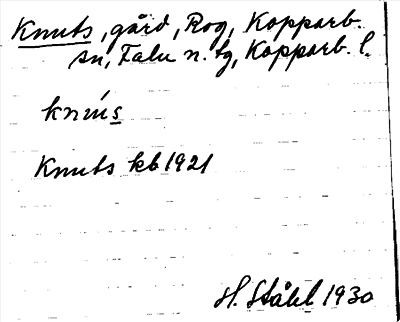 Knuts, gård, Rog, Kopparb.
sn, Falu n. tg, Kopparb. l.
knús
Knuts kb 1921
H. Ståhl 1930